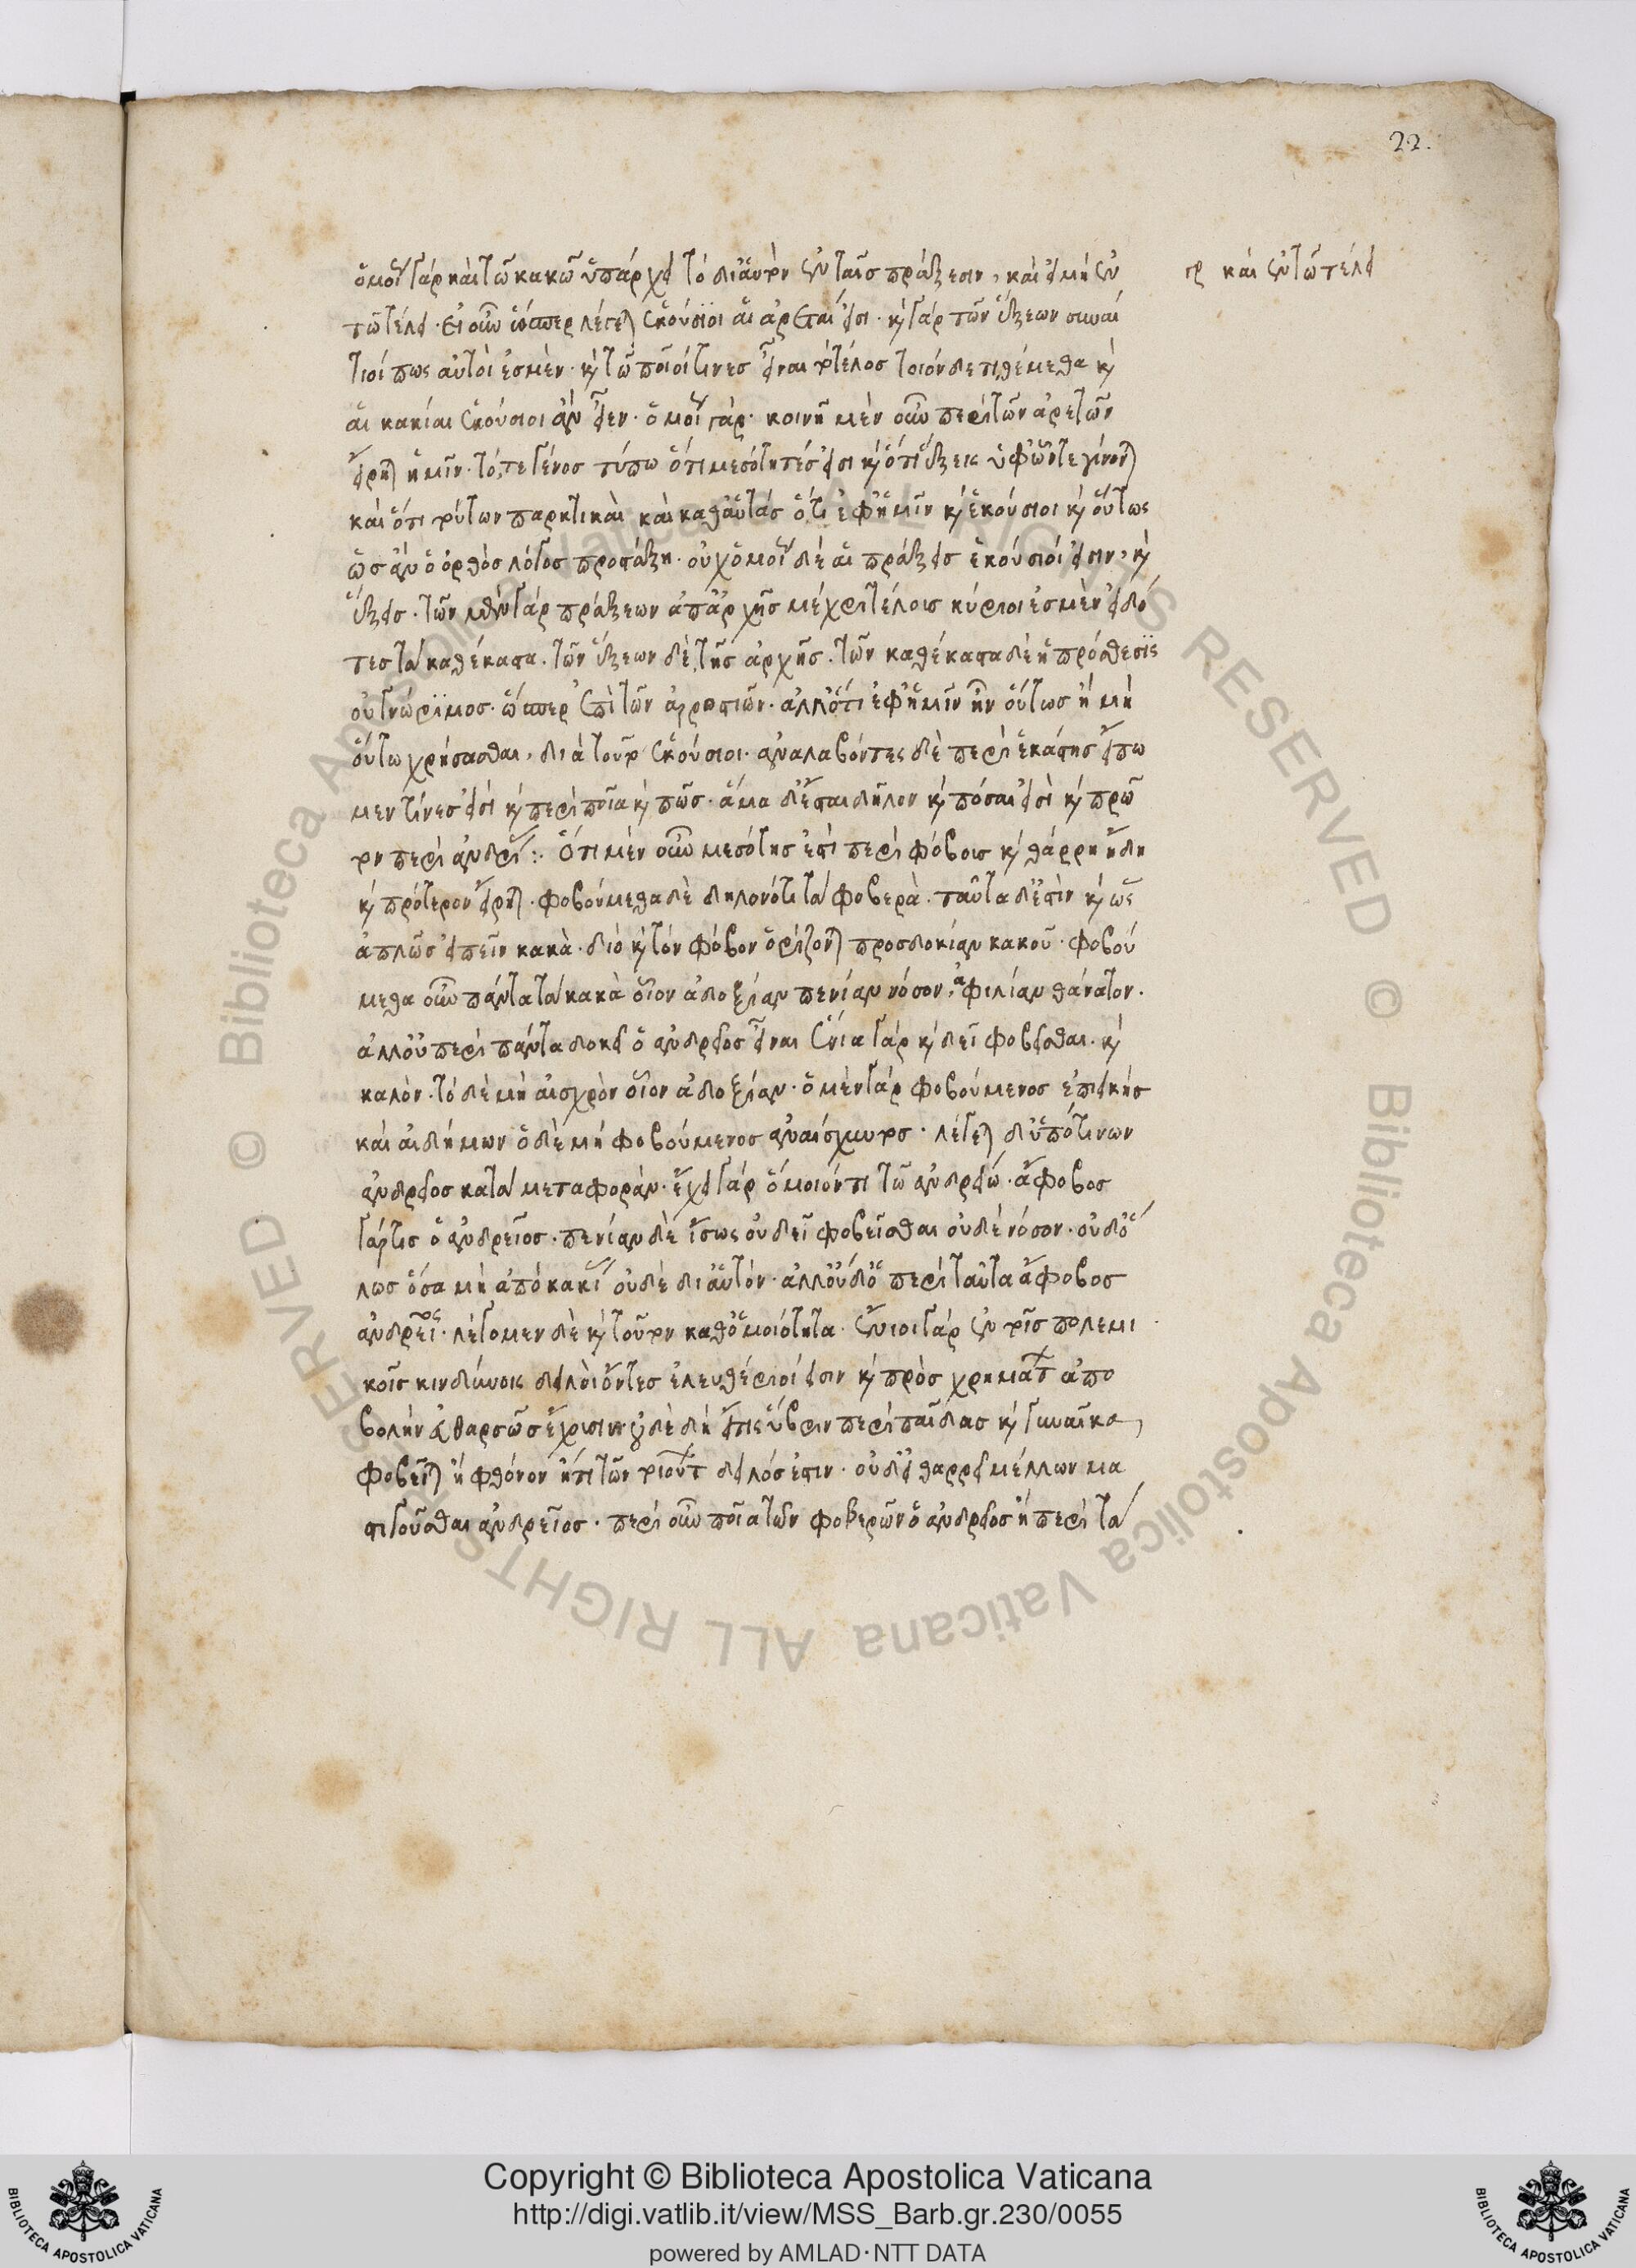 22.
ὁμοίως γὰρ καὶ τῶ κακῶ ὑπάρχει τὸ δι' αὑτὸν ἐν ταῖς πράξεσιν, καὶ εἰ μὴ ἐν
τῶ τέλει. εἰ οὖν ὥσπερ λέγεται ἑκούσιοι αἱ ἀρεταί εἰσι. καὶ γὰρ τῶν ἕξεων συναί
τιοί πως αὐτοὶ ἐσμὲν. καὶ τῶ ποιοί τινες εἶναι τὸ τέλος τοιόνδε τιθέμεθα καὶ
αἱ κακίαι ἑκούσιοι ἂν εἶεν. ὁμοίως γάρ. κοινῆ μὲν οὖν περὶ τῶν ἀρετῶν
εἴρηται ἡμῖν. τό, τε γένος τύπω ὅτι μεσότητές εἰσι καὶ ὅτι ἕξεις ὑφ' ὧν τε γίνονται
καὶ ὅτι τούτων πρακτικαὶ καὶ καθ' αὑτάς ὅτι ἐφ' ἡμῖν καὶ ἑκούσιοι καὶ οὕτως
ὡς ἂν ὁ ὀρθὸς λόγος προστάξη. οὐχ ὁμοίως δὲ αἱ πράξεις ἑκούσιοί εἰσιν, καὶ
ἕξεις. τῶν μὲν γὰρ πράξεων ἀπ' ἀρχῆς μέχρι τέλους κύριοι ἐσμὲν εἰδό
τες τὰ καθέκαστα. τῶν ἕξεων δὲ, τῆς ἀρχῆς. τῶν καθέκαστα δὲ ἡ πρόσθεσις
οὐ γνώριμος. ὥσπερ ἐπὶ τῶν ἀρρωστιῶν. ἀλλ' ὅτι ἐφ' ἡμῖν ἦν οὕτως ἢ μὴ
οὕτω χρήσασθαι, διὰ τοῦτο ἑκούσιοι. ἀναλαβόντες δὲ περὶ ἑκάστης εἴπω
μεν τίνες εἰσὶ καὶ περὶ ποῖα καὶ πῶς. ἅμα δ' ἔσται δῆλον καὶ πόσαι εἰσὶ καὶ πρῶ
τον περὶ ἀνδρείας :. Ὅτι μὲν οὖν μεσότης ἐστὶ περὶ φόβους καὶ θάρρη ἤδη
καὶ πρότερον εἴρηται. φοβούμεθα δὲ δηλονότι τὰ φοβερὰ. ταῦτα δ' ἐστὶν καὶ ὡς
ἁπλῶς εἰπεῖν κακὰ. διὸ καὶ τὸν φόβον ὁρίζονται προσδοκίαν κακοῦ. φοβού
μεθα οὖν πάντα τὰ κακὰ οἷον ἀδοξίαν πενίαν νόσον, ἀφιλίαν θάνατον.
ἀλλ' οὐ περὶ πάντα δοκεῖ ὁ ἀνδρεῖος εἶναι ἔνια γὰρ καὶ δεῖ φοβεῖσθαι. καὶ
καλὸν. τὸ δὲ μὴ αἰσχρὸν οἷον ἀδοξίαν. ὁ μὲν γὰρ φοβούμενος ἐπιεικής
καὶ αἰδήμων ὁ δὲ μὴ φοβούμενος ἀναίσχυντος. λέγεται δ' ὑπό τινων
ἀνδρεῖος κατὰ μεταφορὰν. ἔχει γὰρ ὅμοιόν τι τῶ ἀνδρείω. ἄφοβος
γάρ τις ὁ ἀνδρεῖος. πενίαν δὲ ἴσως οὐ δεῖ φοβεῖσθαι οὐδὲ νόσον. οὐδ' ὅ
λως ὅσα μὴ ἀπὸ κακίας οὐδὲ δι' αὑτόν. ἀλλ' οὐδ' ὁ περὶ ταῦτα ἄφοβος
ἀνδρεῖος. λέγομεν δὲ καὶ τοῦτον καθ' ὁμοιότητα. ἔνιοι γὰρ ἐν τοῖς πολεμι
κοῖς κινδύνοις δειλοὶ ὄντες ἐλευθέριοί εἰσιν καὶ πρὸς χρημάτων ἀπο
βολὴν εὐθαρσῶς ἔχουσιν. οὐδὲ δὴ εἴ τις ὕβριν περὶ παῖδας καὶ γυναῖκα,
φοβεῖται ἢ φθόνον ἤ τι τῶν τοιούτων δειλός ἐστιν. οὐδ' εἰ θαρρεῖ μέλλων μα
στιγοῦσθαι ἀνδρεῖος. περὶ οὖν ποῖα τῶν φοβερῶν ὁ ἀνδρεῖος ἢ περὶ τὰ
καὶ ἐν τῶ τέλει
Copyright © Biblioteca Apostolica Vaticana
http://digi.vatlib.it/view/MSS_Barb.gr.230/0055
powered by AMLAD · NTT DATA
BIBLIOTECA APOSTOLICA VATICANA
BIBLIOTECA APOSTOLICA VATICANA
© Biblioteca Apostolica Vaticana ALL RIGHTS RESERVED © Biblioteca Apostolica Vaticana ALL RIGHTS RESERVED